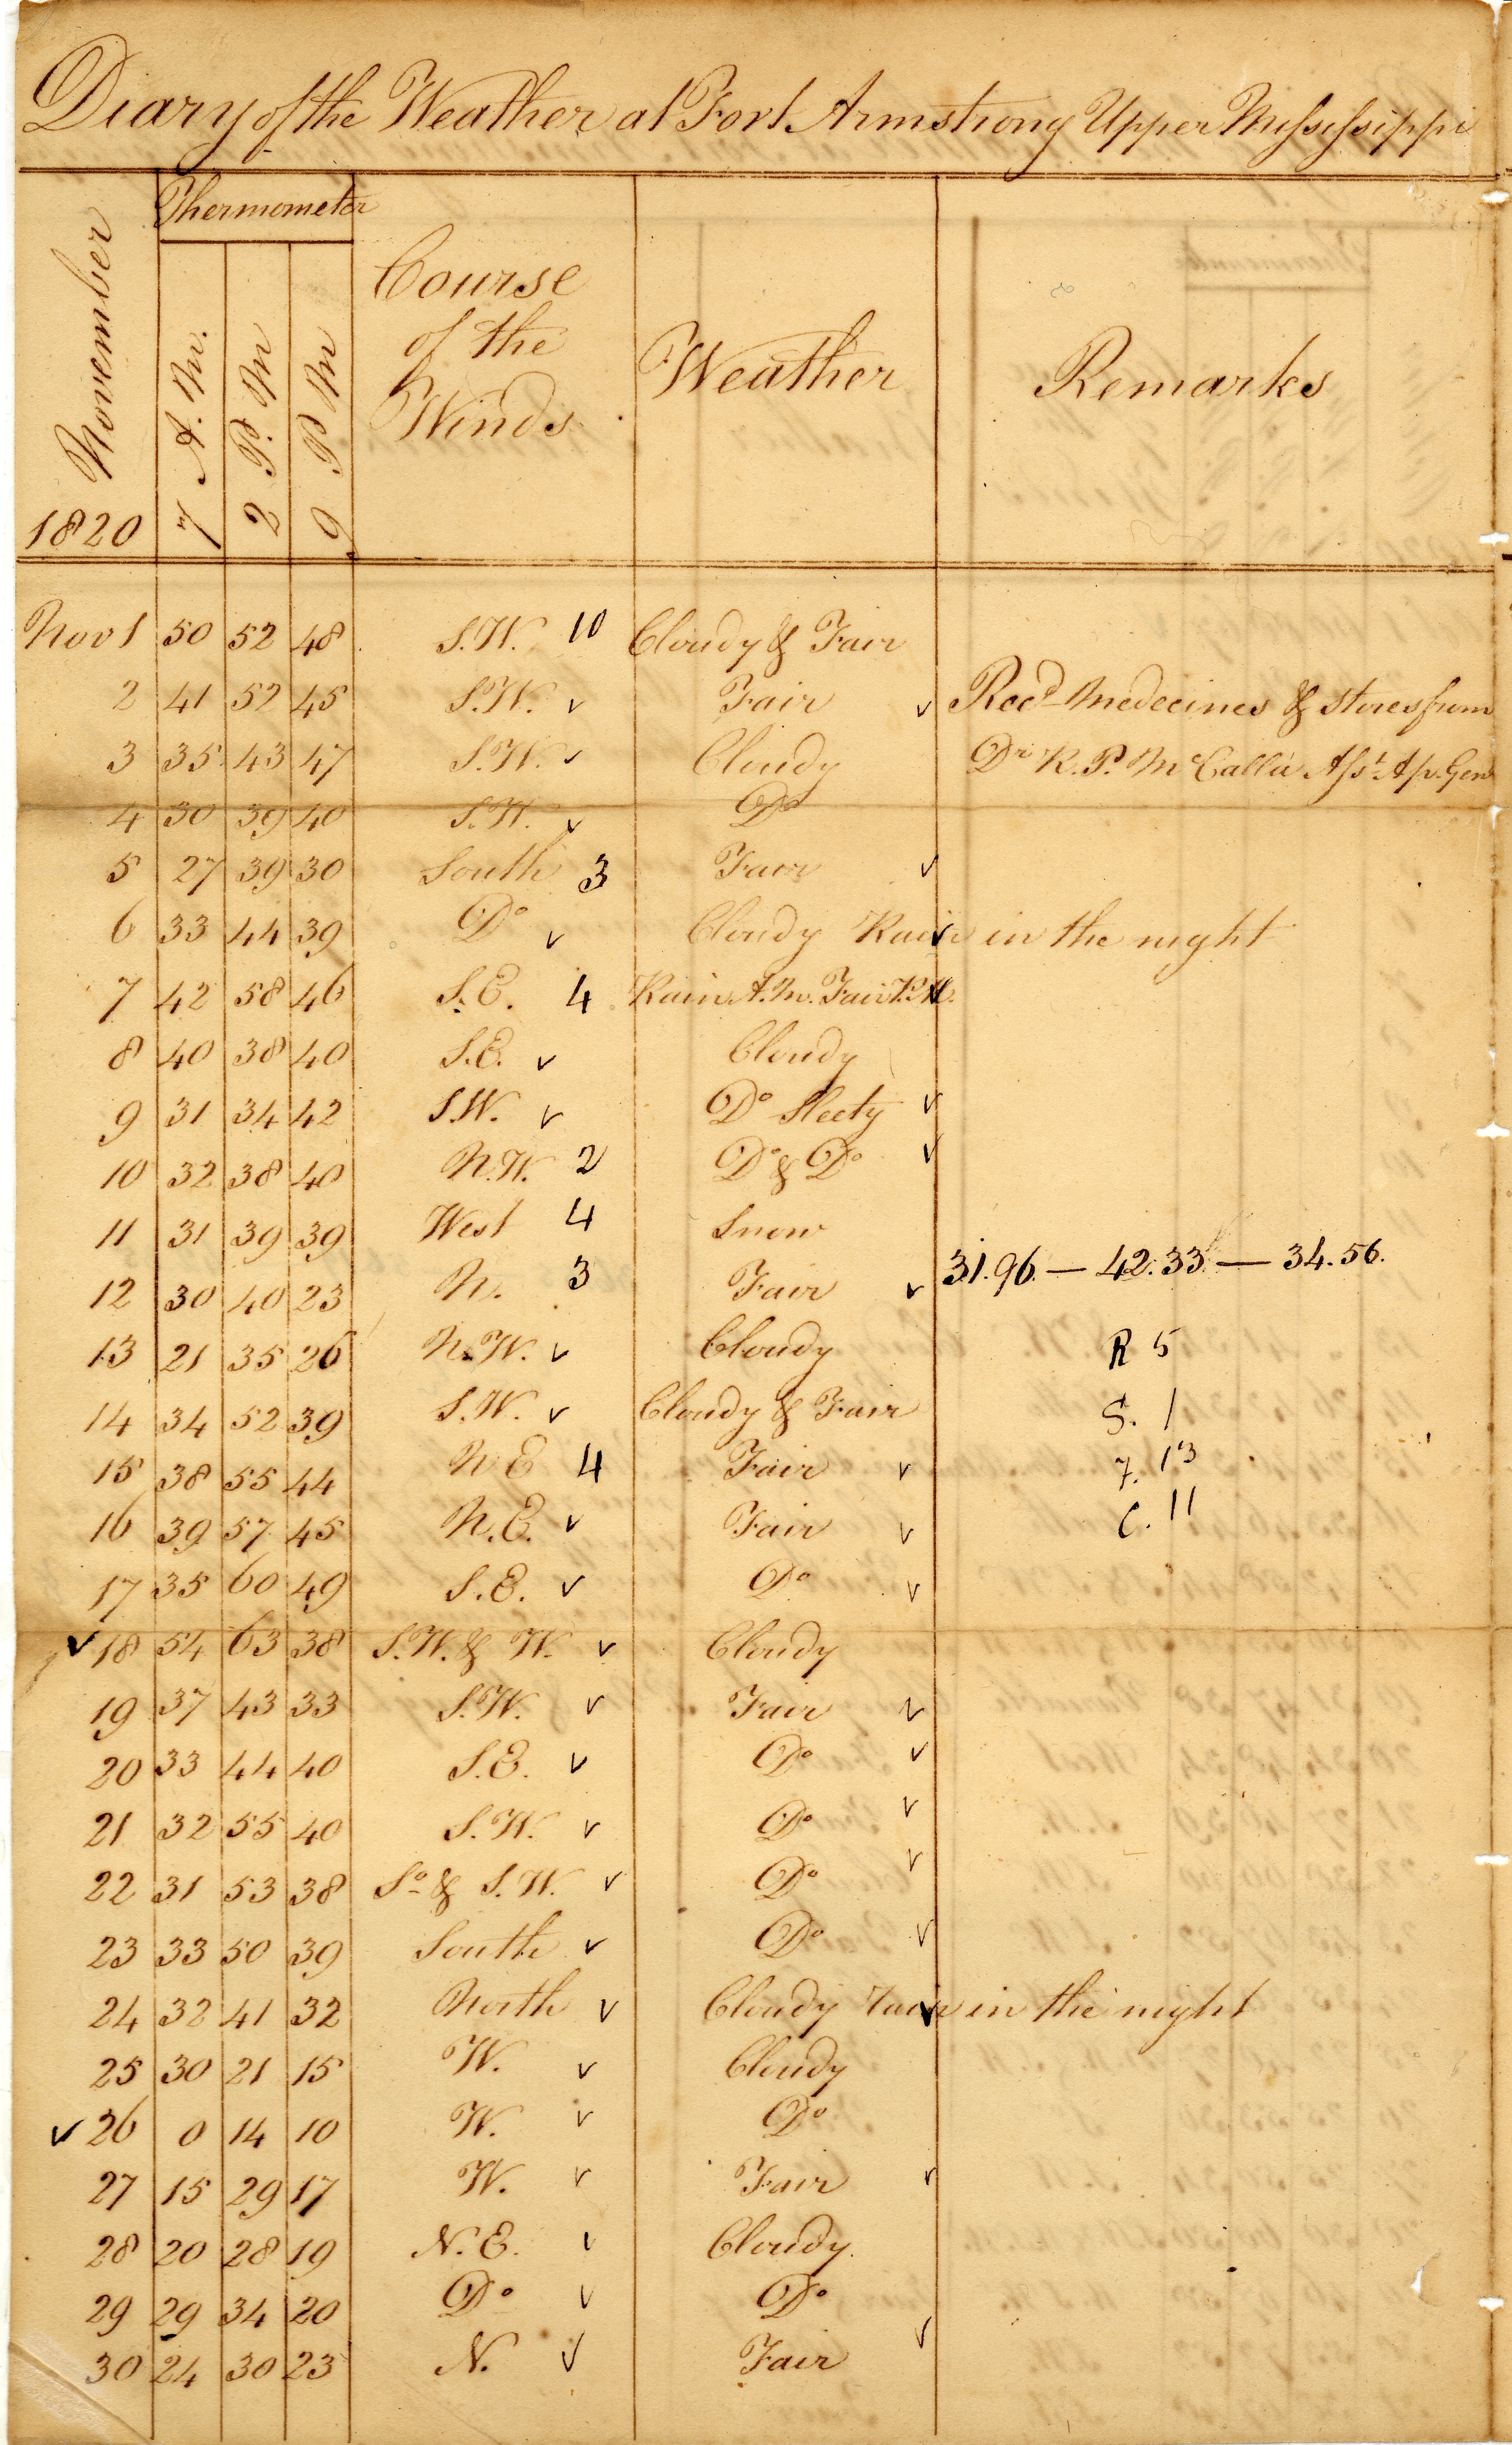 Diary of the Weather at Fort Armstrong Upper Mississippi
November 1820
Thermometer
7 A. M. 2 P. M 9 P M
Course of the Winds
Weather
Remarks
Nov 1 50 52 48 S.W. 10 Cloudy & Fair
2 41 52 45 S.W. v Fair v Recd Medecines & stores from
3 35 43 47 S.W. v Cloudy Dr R. P. McCalla Asst. Ap. Gen
4 30 39 40 S.W. v Do
5 27 39 30 South 3 Fair v
6 33 44 39 Do v Cloudy Rain in the night
7 42 58 46 S.E. 4 Rain A.M. Fair P.M.
8 40 38 40 S.E. v Cloudy
9 31 34 42 S.W. v Do Sleety v
10 32 38 40 N.W. 2 Do & Do v
11 31 39 39 West 4 Snow
31.96. — 42.33. — 34.56.
12 30 40 23 N. 3 Fair v
13 21 35 26 N.W. v Cloudy R 5
14 34 52 39 S.W. v Cloudy & Fair S. 1
15 38 55 44 N E 4 Fair v F. 13
16 39 57 45 N.E. v Fair v C. 11
17 35 60 49 S.E. v Do v
v 18 54 63 38 S.W. & W. v Cloudy
19 37 43 33 S.W. v Fair v
20 33 44 40 S.E. v Do v
21 32 55 40 S.W. v Do v
22 31 53 38 So & S.W. v Do v
23 33 50 39 South v Do v
24 32 41 32 North v Cloudy in the night
25 30 21 15 W. v Cloudy
v 26 0 14 10 W. v Do
27 15 29 17 W. v Fair v
28 20 28 19 N.E. v Cloudy.
29 29 34 20 Do v Do
30 24 30 23 N. v Fair v